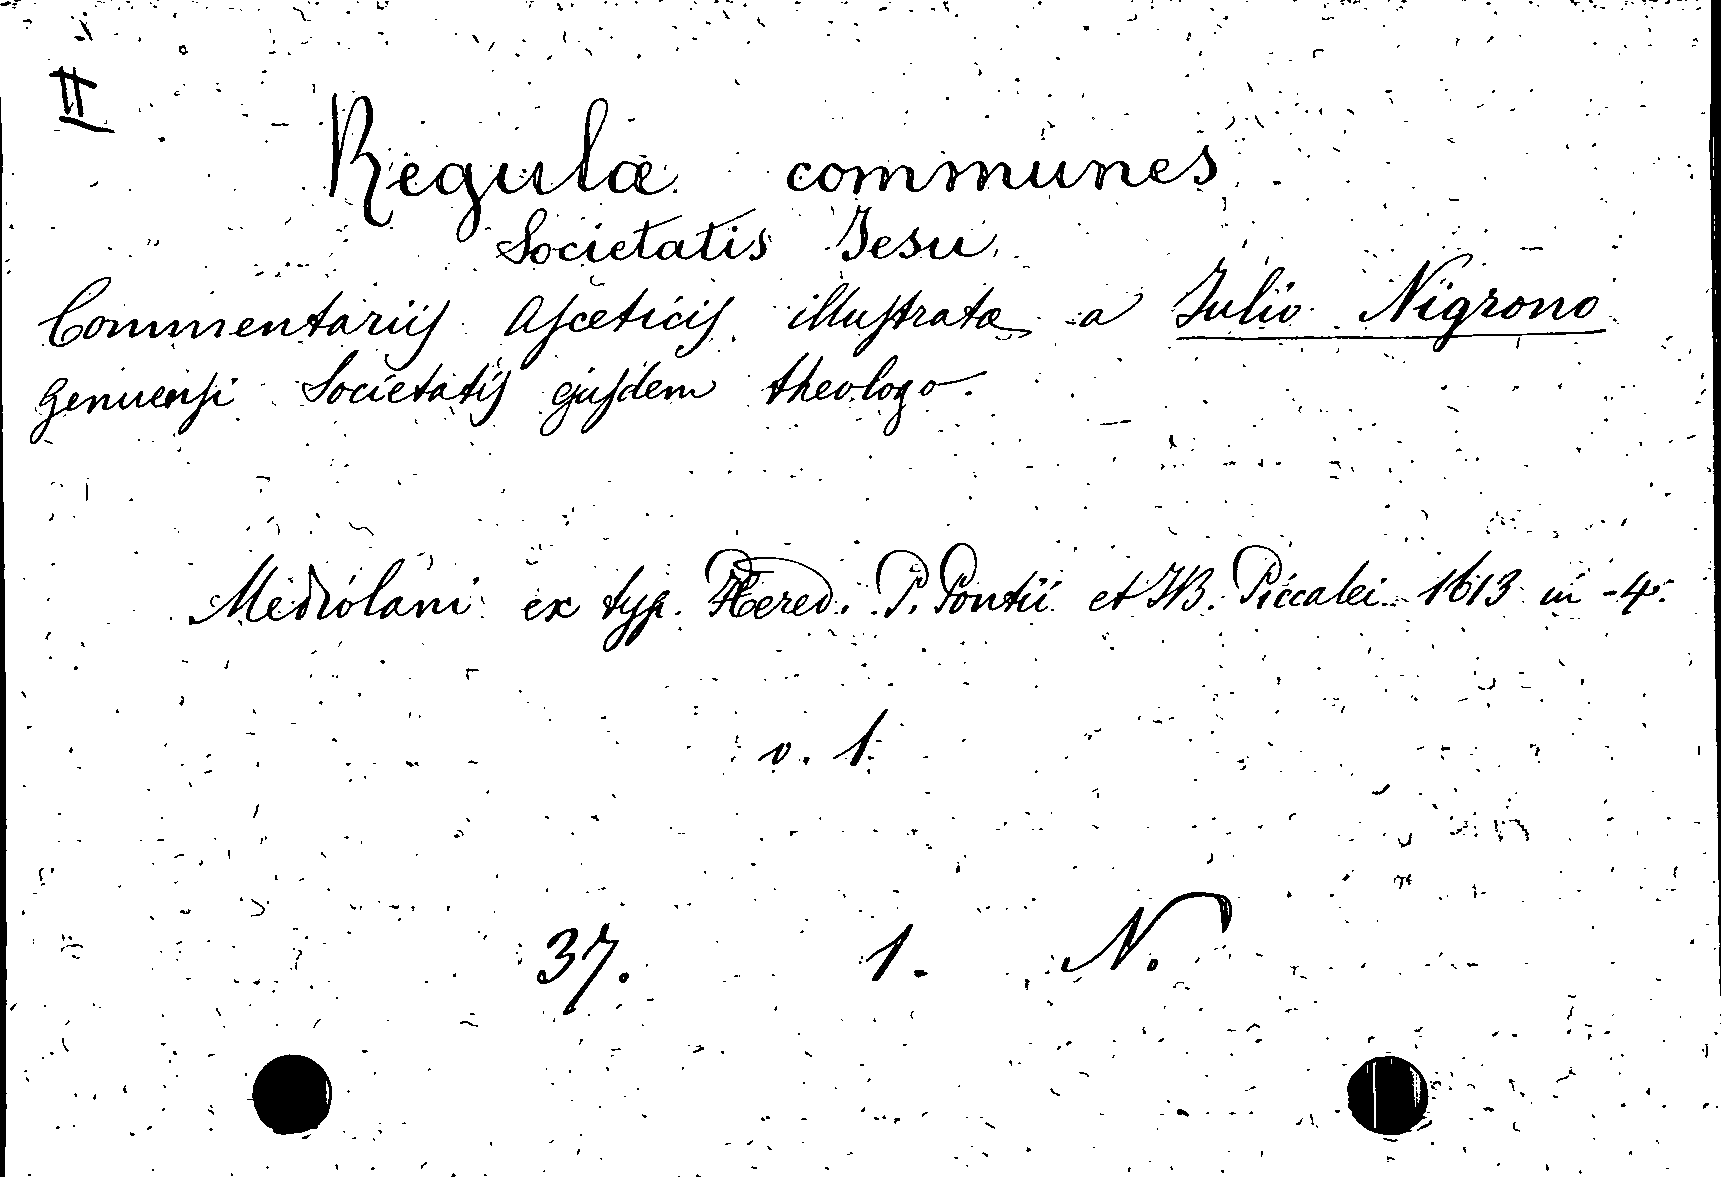 II
Regulæ communes
Societatis Iesu.
Commentariiſ Aſceticiſ illuſtratæ a Iulio Nigrono
genuenſi Societatiſ ejuſdem theologo.
Mediolani ex typ. Hered. P. Pontii et IB. Piccalei 1613 in -4°.
v. 1.
37. 1. N.